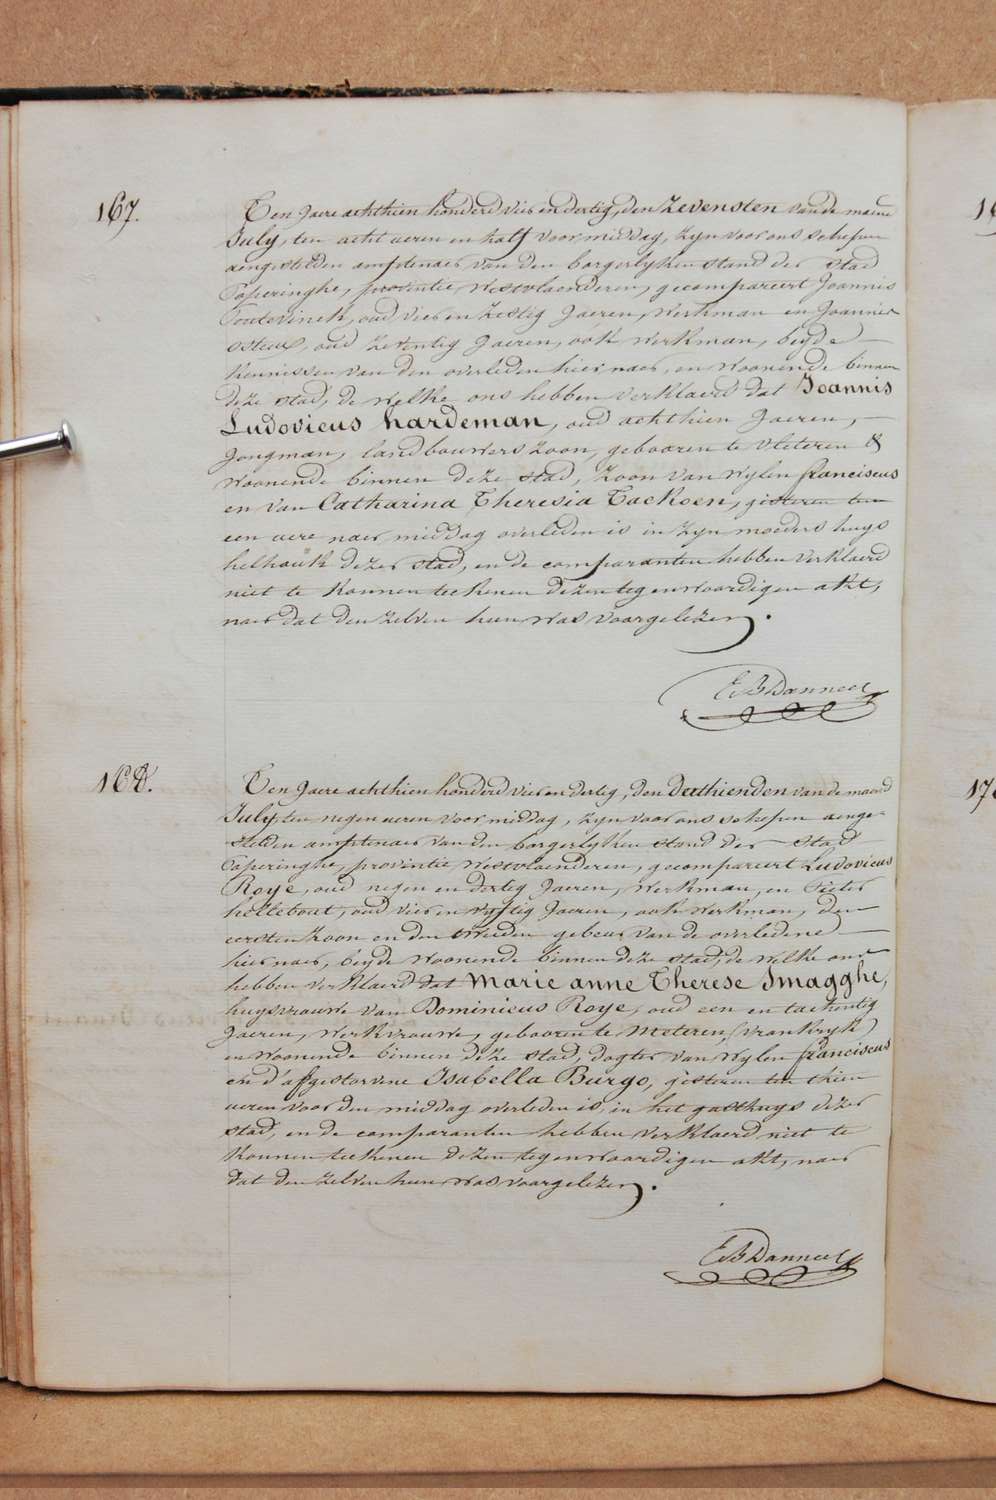 167.
Ten Jaere achthien honderd vier en dertig, den Zevensten van de maend
July, ten acht ueren en half voormiddag, zyn voor ons schepen
aengestelden amptenaer van den borgerlyken stand der stad
Poperinghe, provintie Westvlaenderen, gecompareert Joannis
oud vier en zestig Jaeren, Werkman en Joannes
osteux, oud zeventig Jaeren, ook werkman, beyde
kennissen van den overleden hier naer, en Woonende binnen
deze stad, de welke ons hebben verklaerd dat Joannis
Ludovicus hardeman, oud achthien Jaeren,
Jongman, landbouwers zoon, gebooren te vleteren &
woonende binnen deze stad, zoon van wylen franciscus
en van Catharina Theresia Tacksen, gisteren ten
een uere naer middag overleden is in zyn moeders huys
helhouk dezer stad, en de comparanten hebben verklaerd
niet te konnen teekenen dezen tegenwoordigen akt,
naer dat den zelven hun was voorgelezen.
E B Danneel
168.
Ten Jaere achthien honderd vier en dertig, den derthienden van de maend
July, ten negen ueren voormiddag, zyn voor ons schepen aenge-
stelden amptenaer van den borgerlyken stand der stad
Poperinghe, provintie Westvlaenderen, gecompareert Ludovicus
Roye, oud negen en dertig Jaeren, Werkman, en Pieter
hellebout, oud vier en vyftig Jaeren, ook werkman, den
eersten zoon en den tweeden gebeur van de overledene
hier naer, beyde woonende binnen deze stad, de welke ons
hebben verklaerd dat Marie anne Therese Smagghe,
huysvrauwe van Dominicus Roye, oud een en tachentig
Jaeren, werkvrouwe, gebooren te Meteren, (vrankryk)
en woonende binnen deze stad, dogter van wylen franciscus
en d'afgestorvene Isabella Burgo, gisteren ten thien
ueren voor den middag overleden is, in het gasthuys dezer
stad, en de comparanten hebben verklaerd niet te
konnen teekenen dezen tegenwoordigen akt, naer
dat den zelven hun was voorgelezen.
E B Danneel